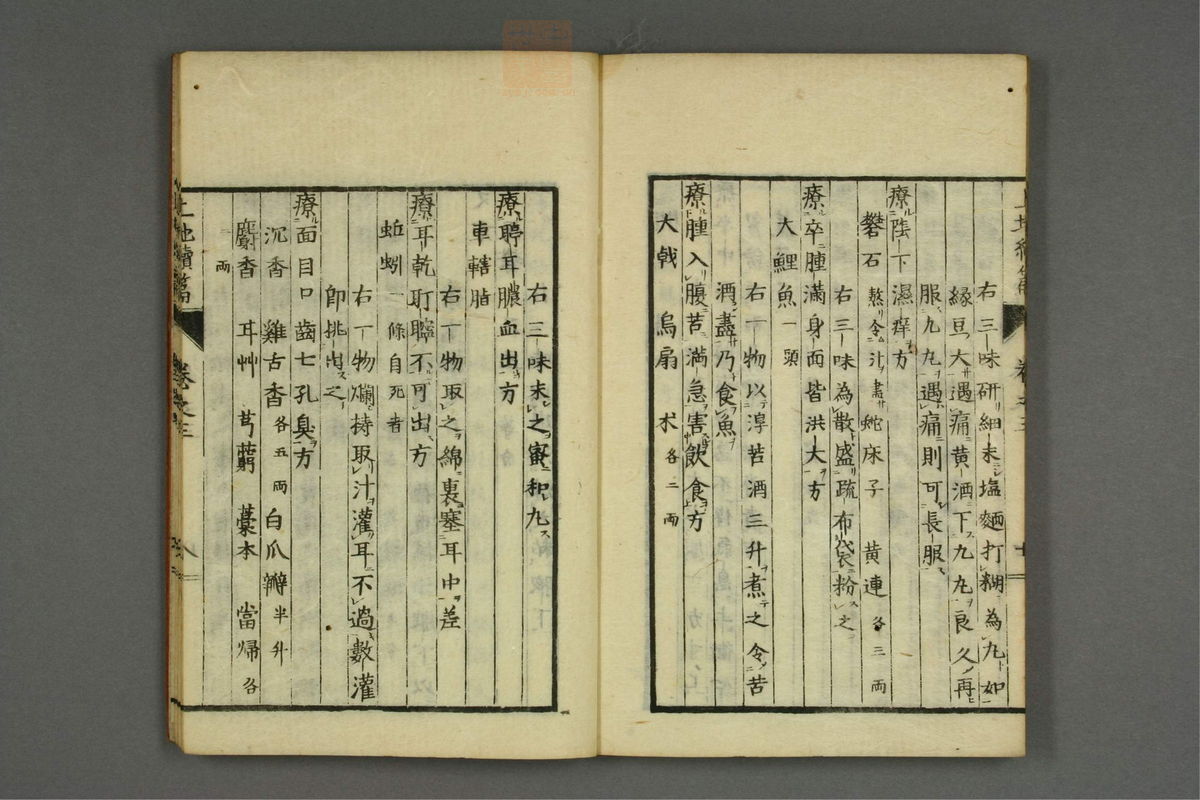 右三味研細末塩麺打糊為丸如
緑豆大遇痛黄酒下九丸良久再
服九丸遇痛則可長服
療陰下濕痒方
礬石 熬令汁盡 蛇床子 黄連 各三両
右三味為散盛疏布袋粉之
療卒腫滿身面皆洪大方
大鯉魚 一頭
右一物以淳苦酒三升煮之令苦
酒盡乃食魚
療腫入腹苦滿急害飲食方
大戟 烏扇 朮 各二両
右三味末之蜜和丸
療聤耳膿血出方
車轄脂
右一物取之綿裹塞耳中差
療耳乾耵聹不可出方
蚯蚓 一條自死者
右一物爛持取汁灌耳不過數灌
即挑出之
療面目口齒七孔臭方
沉香 雞古香 各五両 白瓜瓣 半升
麝香 耳艸 芎藭 藁本 當帰 各
二両
卷之三